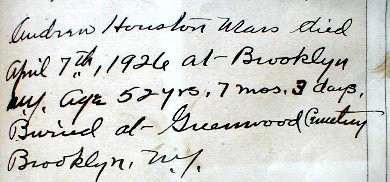 Andrew Houston Mars died
April 7th, 1926 at Brooklyn
N.Y. Age 52 yrs. 7 mos. 3 days.
Buried at Greenwood Cemetery
Brooklyn, N.Y.